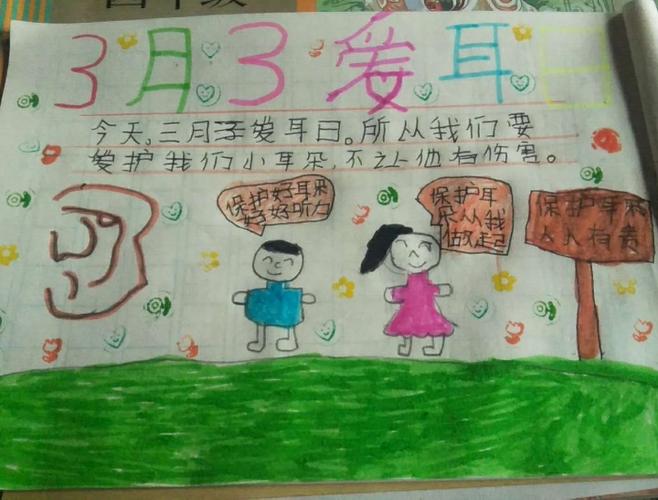 3月3爱耳日
今天,三月子爱耳日。所从我们要
爱护我们小耳朵,不让他有伤害。
保护好耳朵
好好听力
保护耳
朵从我
做起
保护耳朵
人人有责